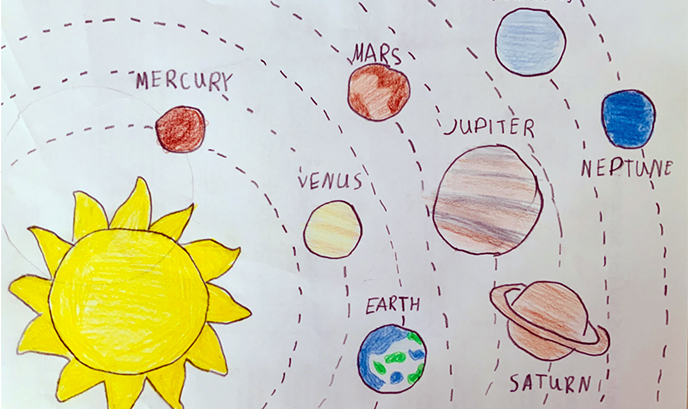 MARS
MERCURY
JUPITER
NEPTUNE
VENUS
EARTH
SATURN